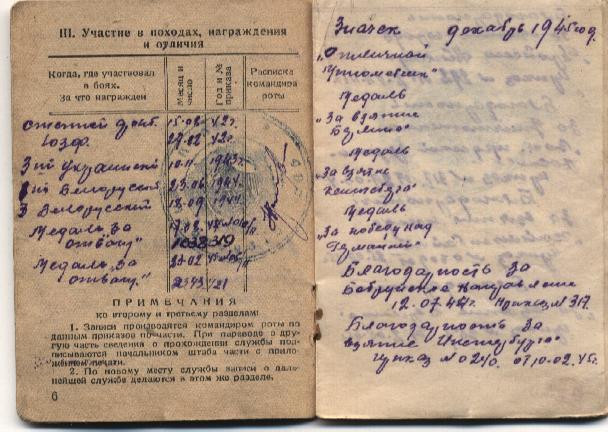 III. Участие в походах, награждения
и отличия
Когда, где участвовал
в боях.
За что награжден
Месяц и
число
Год и №
приказа
Расписка
командира
роты
степной фронт 15.08 42г.
ЮЗФ. 27.02 42г.
3ий Украинский 10.11 1943г.
ий Белорусский 23.06 1944.
3 Белорусский 18.09 1944.
Медаль „За
отвагу"
1038319
Медаль „За 27.02
отвагу."
ПРИМЕЧАНИЯ
ко второму и третьему разделам:
1. Записи производятся командиром роты по
данным приказов по части. При переводе в дру-
гую часть сведения о прохождении службы под-
писываются начальником штаба части с прило-
жением печати.
2. По новому месту службы записи о даль-
нейшей службе делаются в этом же разделе.
6
Значек декабрь 1945 год.
„Отличной
Медаль
„За взятие
Берлина"
Медаль
„За взятие
Кенигсберга"
Медаль
„За победу над
Германией"
Благодарность за
Бобруйское направление
12.07.44г. Приказ № 317.
Благодарность за
взятие Инстербурга
приказ № 0240. от 10-02.45г.